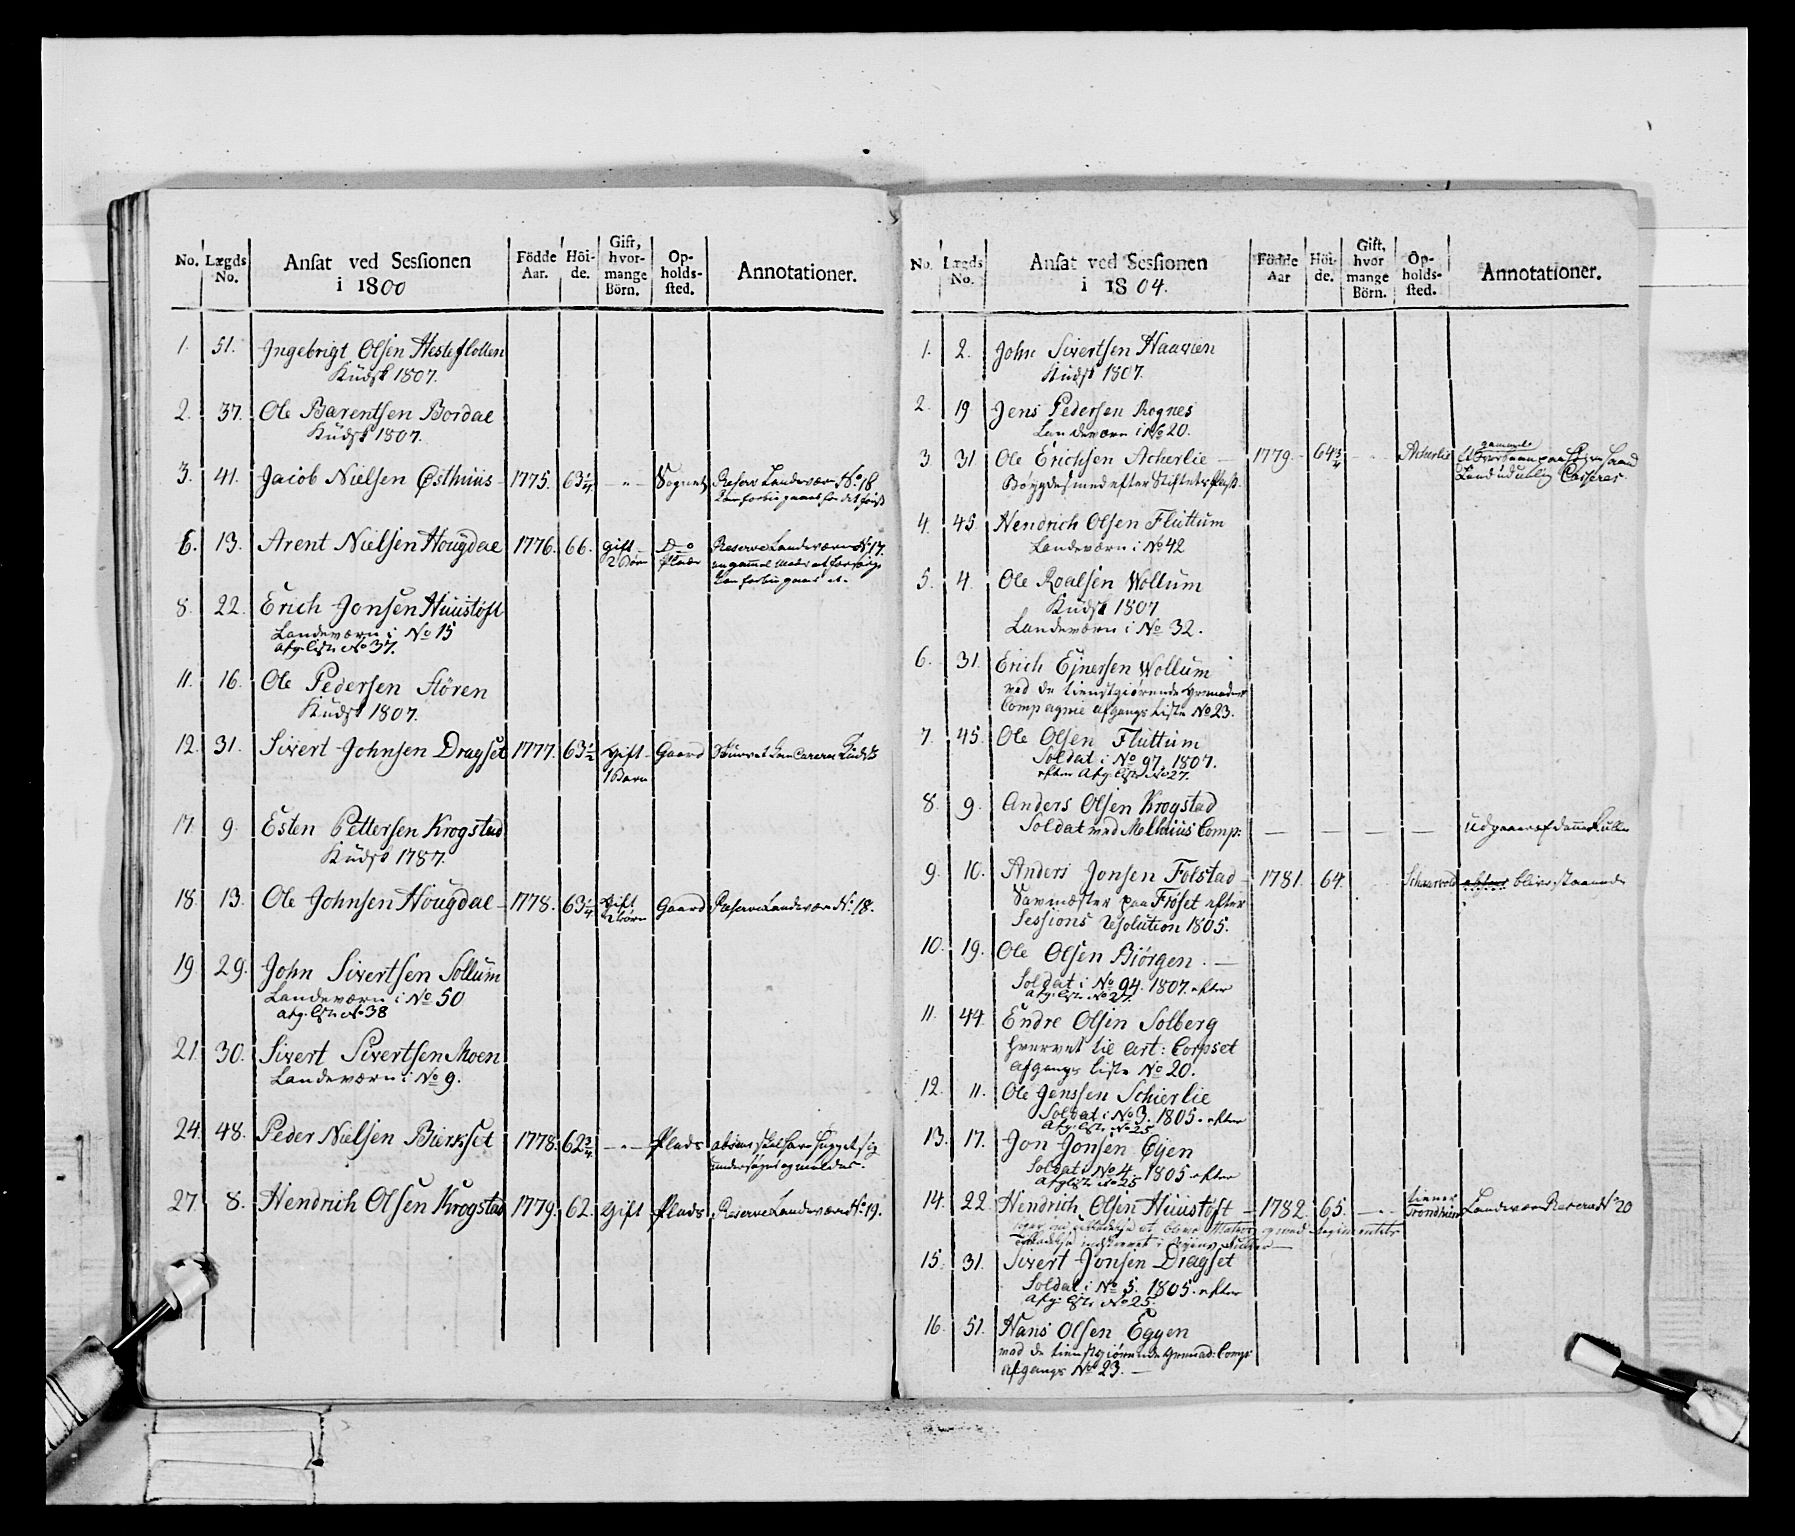 No. Lægds No. Ansat ved Sessionen i 1800 Födde Aar. Höide. Gift, hvormange Börn. Opholdssted. Annotationer.
1. 51. Ingebrigt Olsen Hesteflotten
Kudsk 1807.
2. 37. Ole Barentsen Bordal
Kudsk 1807.
3. 41. Jacob Nielsen Østhuus 1775. 63 1/4 - " - Sognet Reserve Landeværn No. 18
6. 13. Arent Nielsen Hougdal 1776. 66. gift 2 Børn Do Reserve Landeværn No. 17.
8. 22. Erich Jonsen Huustoft
Landeværn i No 15
Afg. Liste No 37.
11. 16. Ole Pedersen Støren
Kudsk 1807.
12. 31. Sivert Johnsen Dragset 1777. 63 1/2 Gift 1 Barn Gaard Kudsk
17. 9. Esten Pettersen Krogstad
Kudsk 1787.
18. 13. Ole Johnsen Hougdal 1778. 63 1/4 Gift 2 Børn Gaard Reserve Landeværn No. 18.
19. 29. John Sivertsen Sollum
Landeværn i No 50
Afg. Liste No 38
21. 30. Sivert Sivertsen Moen
Landeværn i No 9.
24. 48. Peder Nielsen Bierkset 1778. 62 3/4 - " - Plads
undersøges og meldes.
27. 8. Hendrich Olsen Krogstad 1779. 62. Gift Plads Reserve Landeværn No. 19.
No. Lægds No. Ansat ved Sessionen i 1804. Födde Aar Höide. Gift, hvor mange Börn. Opholdssted. Annotationer.
1. 2. John Sivertsen Haavien
Kudsk 1807.
2. 19 Jens Pedersen Rognes
Landeværn i No 20.
3 31 Ole Erichsen Acherlie 1779. 64 3/4 Acherlie gammel
Land udulig Casseres.
Bøygdesmed efter
4. 45. Hendrich Olsen Fluttum
Landeværn i No 42
5. 4. Ole Roalsen Wollum
Kudsk 1807
Landeværn i No 32.
6. 31. Erich Ejnersen Wollum
ved de tienstgiørende Grenadeer
Compagnie afgangs Liste No 23.
7. 45. Ole Olsen Fluttum
Soldat i No 97. 1807.
efter Afg. Liste No 27.
8. 9. Anders Olsen Krogstad
Soldat ved Melhuus Comp: — — — — udgaaer af denne Rulle
9. 10. Anders Jonsen Folstad 1781. 64. bliver staaende
Savmæster paa Frøset efter
Sessions Resolution 1805.
10. 19. Ole Olsen Biørgen
Soldat i No 94. 1807. efter
Afg. Liste No 27.
11. 44. Endre Olsen Solberg
hvervet til Art: Corpset
Afgangs Liste No 20.
12. 11. Ole Jenssen Schierlie
Soldat i No 3. 1805. efter
Afg. Liste No 25
13. 17. Jon Jonsen Eyen
Soldat i No 4. 1805 efter
Afg Liste No 25
14. 22. Hendrich Olsen Huustoft 1782. 65. tiener Trondhiem Landeværn Reserve No 20
15. 31. Sivert Jonsen Dragset
Soldat i No 5. 1805. efter
Afg. Liste No 25.
16. 51. Hans Olsen Eggen
ved de tienstgiørende Grenad: Comp:
Afgangs No 23.